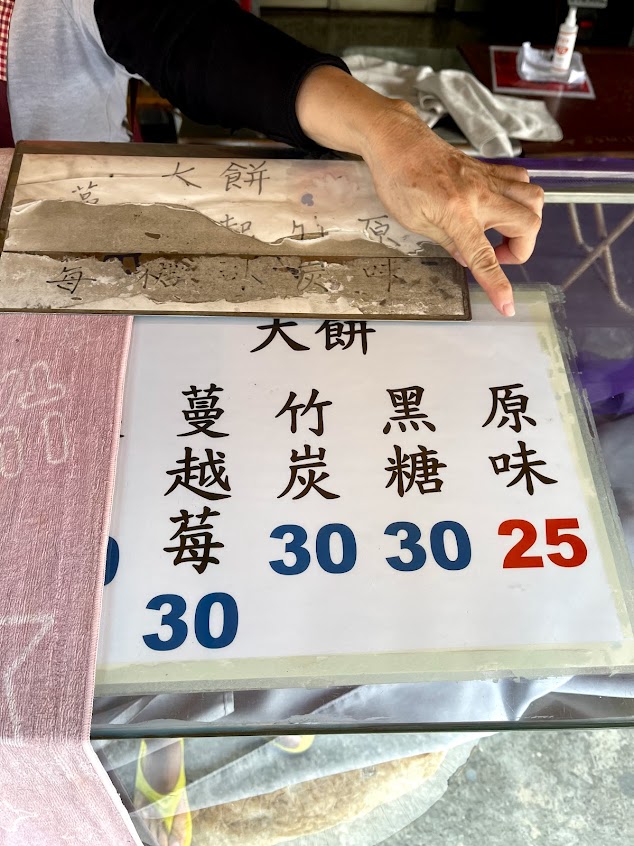 大餅
原味
25
黑糖
30
竹炭
30
蔓越莓
30
大餅
原味
竹炭
莓